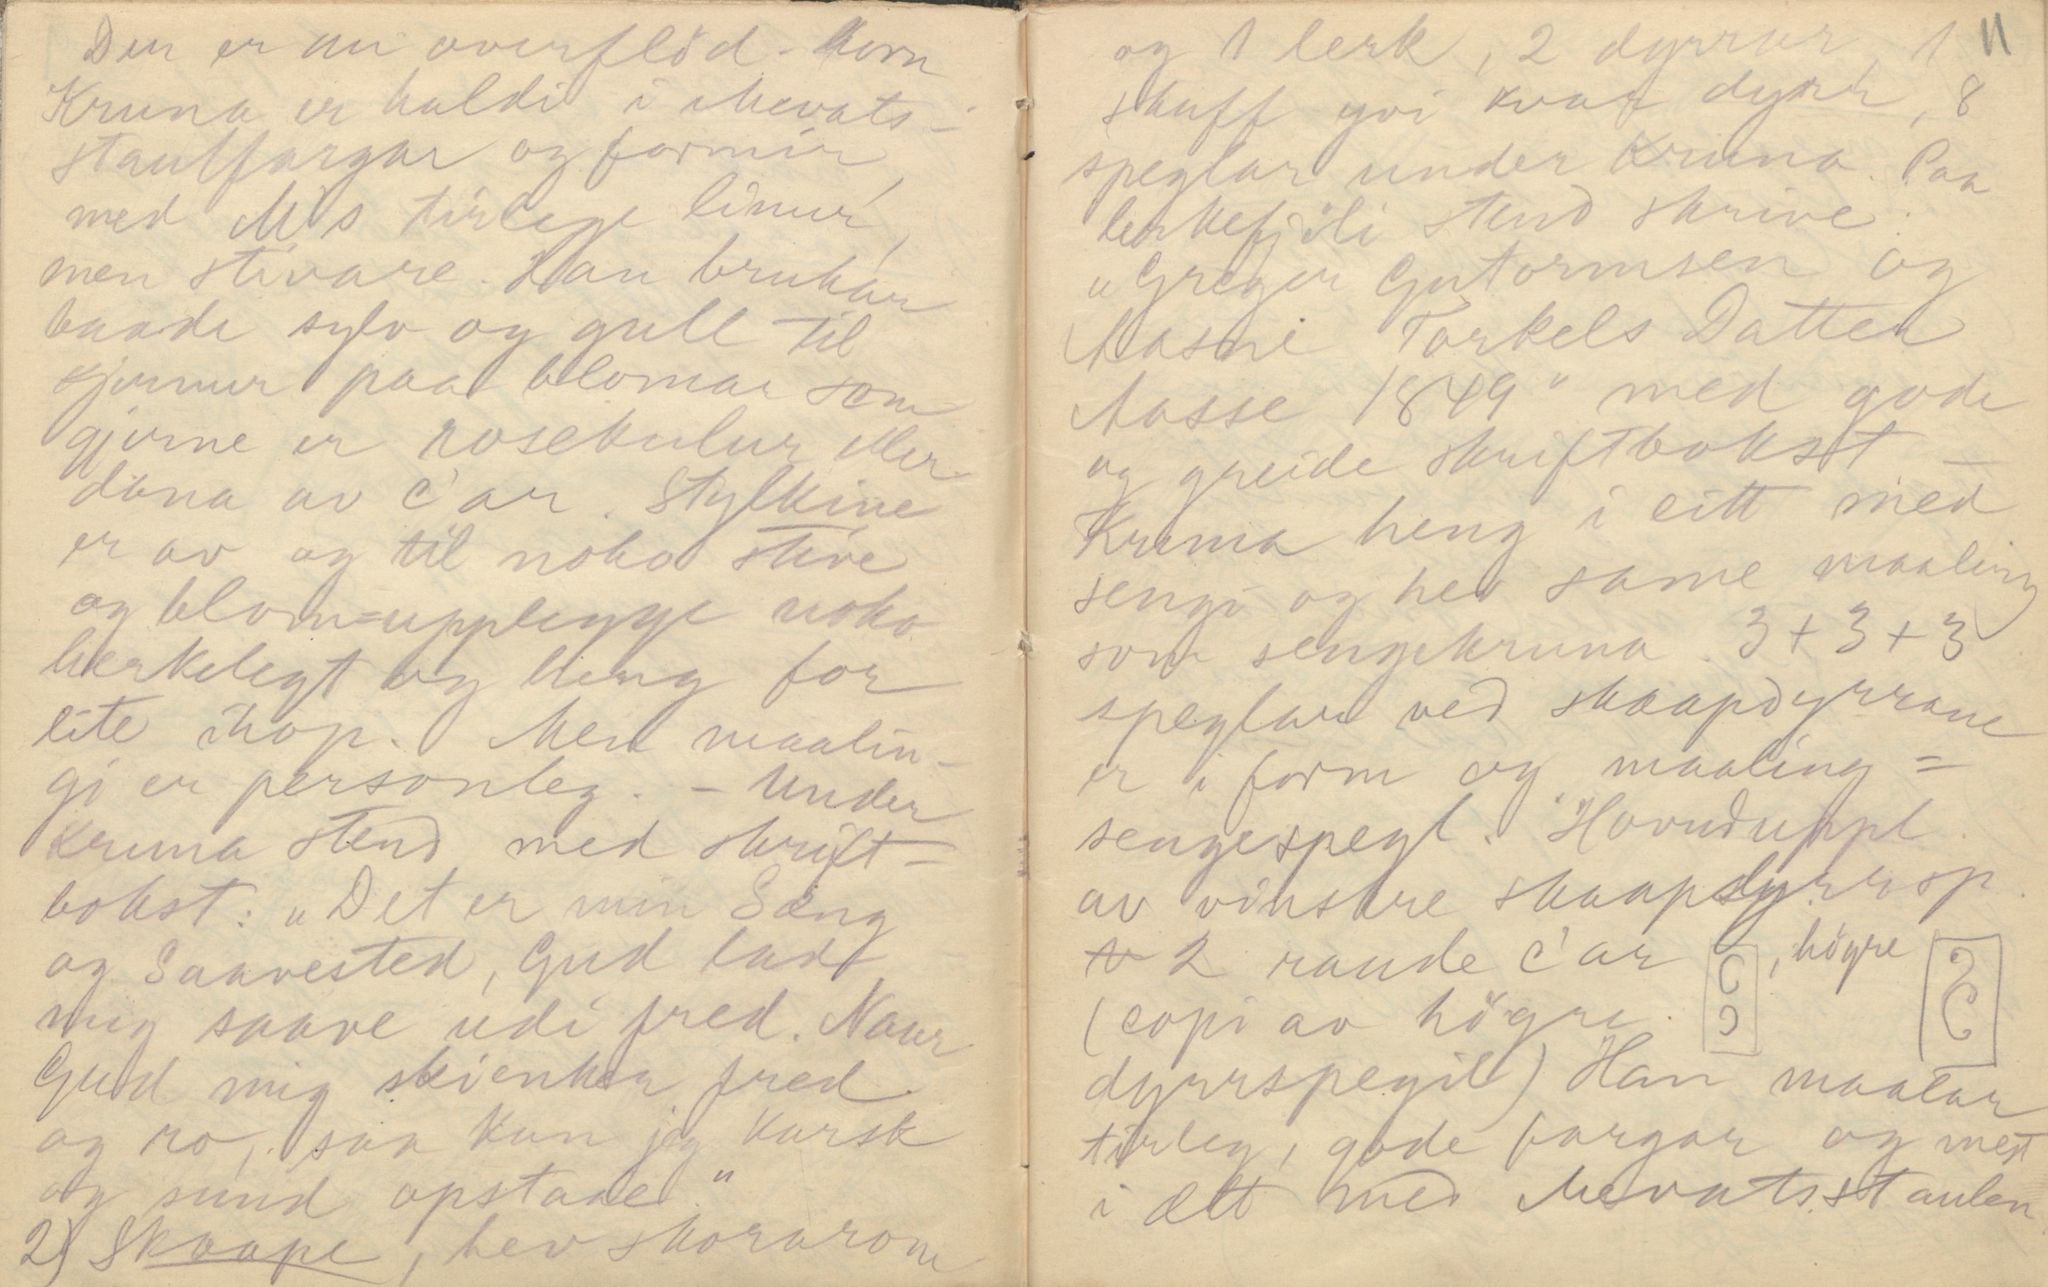 Den er an overflöd. Kom
Kruna er haldi i Mevats-
staulfargar og formir,
med M's tirlege linur,
men stivare. Han brukar
baade sylv og gull til
kjernur paa blomar som
gjerne er rosekulur eller
dana av c'ar. Stylkine
er av og til noko stive
og blom-upplegge noko
herkelegt og heng for
lite ihop. Men maalin-
gi er personleg. – Under
Kruna stend med skrift-
bokst: „Det er min Sæng
og Saavested, Gud lad
mig saave udi fred. Naar
Gud mig skienker fred
og ro, saa kan jeg karsk
og sund opstaae."
2) Skaape, hev skorarom
og 1 lerk, 2 dyrrar, 1 11
skuff yvi kvar dyrr, 8
speglar under Kruna. Paa
lerkefjöli stend skrive:
„Greger Gutormsen og
Aasne Torkels Datter
Aasse 1849" med gode
og greide skriftbokst –
Kruna heng i eitt med
sengi og hev same maaling
som sengekruna. 3+3+3
speglar ved skaapdyrrane
er i form og maaling =
sengespegl. Hovuduppl.
av vinstre skaapdyrrsp.
2 rande c'ar , högre
(copi av högre
dyrrspegil) Han maalar
tirleg, gode fargar og mest
i ætt med Mevatsstaulen